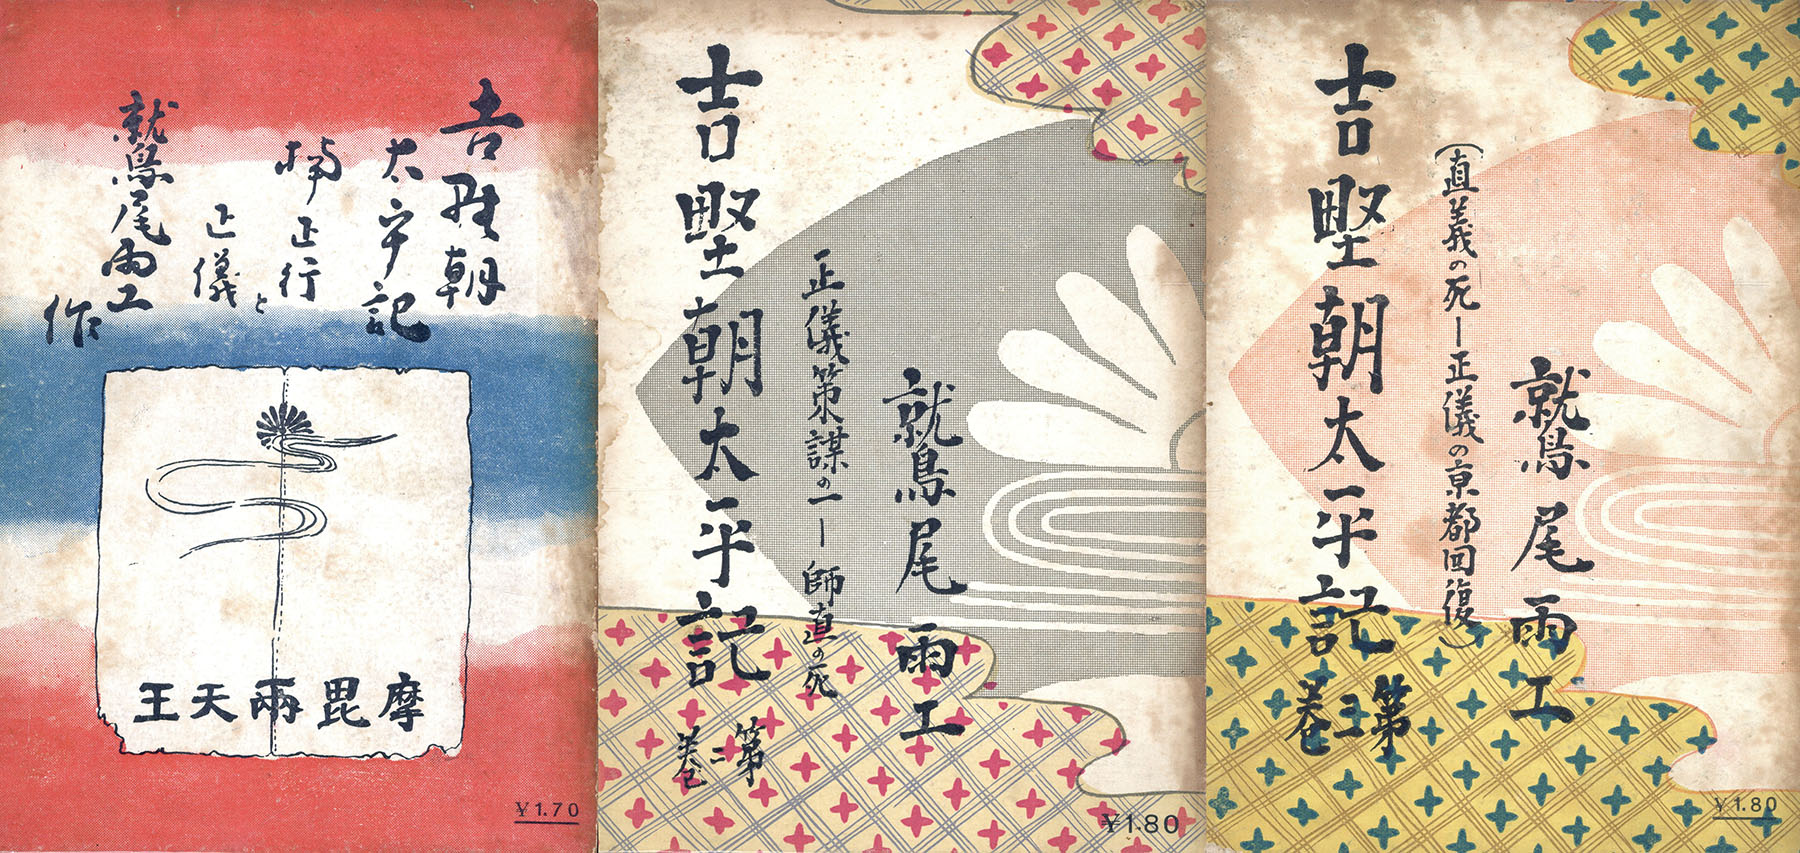 吉野朝
太平記
楠正行と
正儀
鷲尾雨工
作
摩毘兩天王
¥1.70
吉野朝太平記
第二巻
正儀策謀の一―師直の死
鷲尾雨工
¥1.80
吉野朝太平記
第三巻
(直義の死―正儀の京都回復)
鷲尾雨工
¥1.80